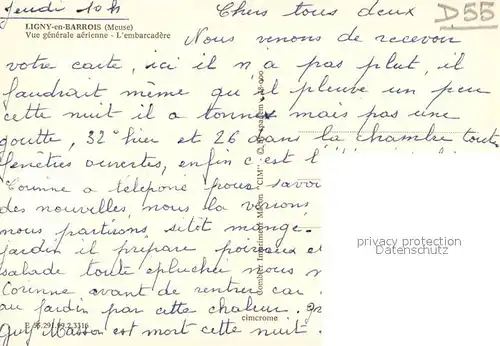 Jeudi 10 h
D55
LIGNY-en-BARROIS (Meuse)
Vue générale aérienne - L'embarcadère
Chers tous deux
Nous venons de recevoir
votre carte, ici il n'a pas plut, il
faudrait même qu'il pleuve un peu
cette nuit il a tonner mais pas une
goutte, 32° hier et 26 dans la chambre toute
fenêtres ouvertes, enfin c'est l'
Corinne a téléponé pour savoi
des nouvelles, nous la verions
nous partirons, sitôt mangé.
jardin il prépare poireaux et
salade toute épluchée nous
Corinne avant de rentrer car
au jardin par cette chaleur.
Guy est mort cette nuit
Combier Imprimeur Macon "CIM"
cimcrome
privacy protection
Datenschutz